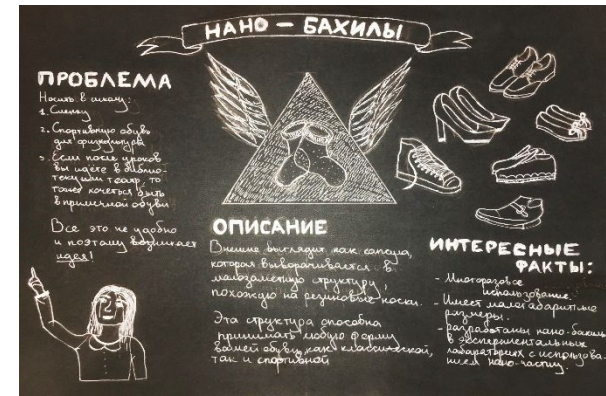 НАНО – БАХИЛЫ
ПРОБЛЕМА
Носить в школу:
1. Сменку
2. Спортивную обувь
для физкультуры
3. Если после уроков
вы идёте в библио-
теку или театр, то
тоже хочется быть
в приличной обуви
Все это не удобно
и поэтому возникает
идея!
ОПИСАНИЕ
Внешне выглядит как капсула,
которая выворачивается в
малозаметную структуру,
похожую на резиновые носки.
Эта структура способна
принимать любую форму
вашей обуви, как классической,
так и спортивной
ИНТЕРЕСНЫЕ
ФАКТЫ:
- Многоразовое
использование.
- Имеет малогабаритные
размеры.
- разработаны нано-бахилы
в экспериментальных
лабораториях с использова-
нием нано-частиц.